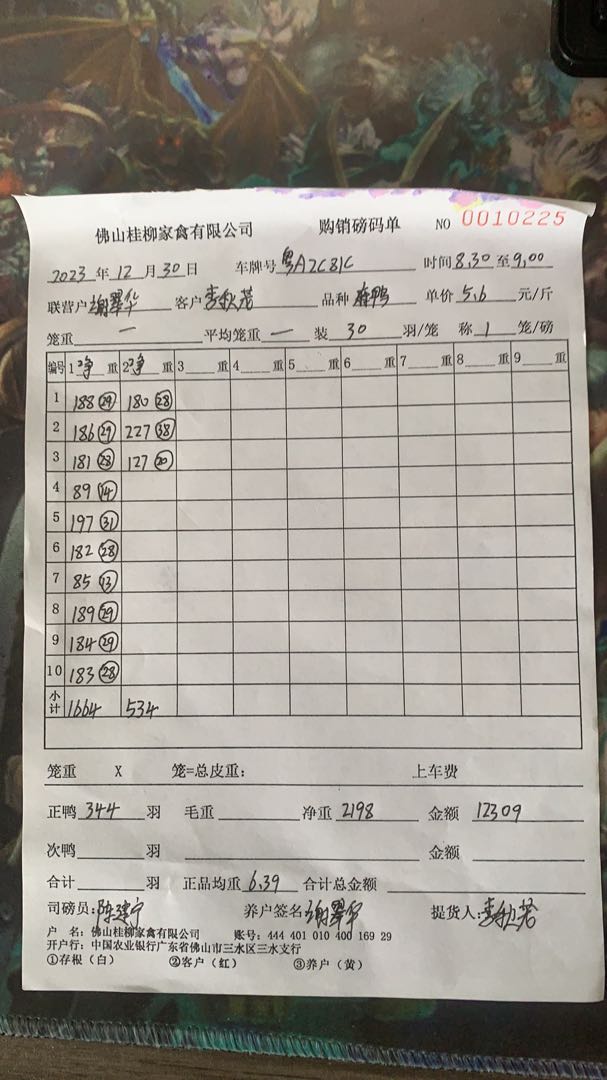 佛山桂柳家禽有限公司 购销磅码单 NO 0010225
2023年12月30日 车牌号粤A2C81C 时间8,30至9,00
联营户谢翠华 客户 品种麻鸭 单价5.6元/斤
笼重 一 平均笼重 一 装 30 羽/笼 称 1 笼/磅
编号 1净重 2净重 3 重 4 重 5 重 6 重 7 重 8 重 9 重
1 188(29) 180(28)
2 186(29) 227(38)
3 181(28) 127(20)
4 89(14)
5 197(31)
6 182(28)
7 85(13)
8 189(29)
9 184(29)
10 183(28)
小计 1664 534
笼重 X 笼=总皮重: 上车费
正鸭 344 羽 毛重 净重 2198 金额 12309
次鸭 羽 金额
合计 羽 正品均重 6.39 合计总金额
司磅员:陈建宁 养户签名:谢翠华 提货人:
户 名: 佛山桂柳家禽有限公司 账号: 444 401 010 400 169 29
开户行: 中国农业银行广东省佛山市三水区三水支行
①存根(白) ②客户(红) ③养户(黄)